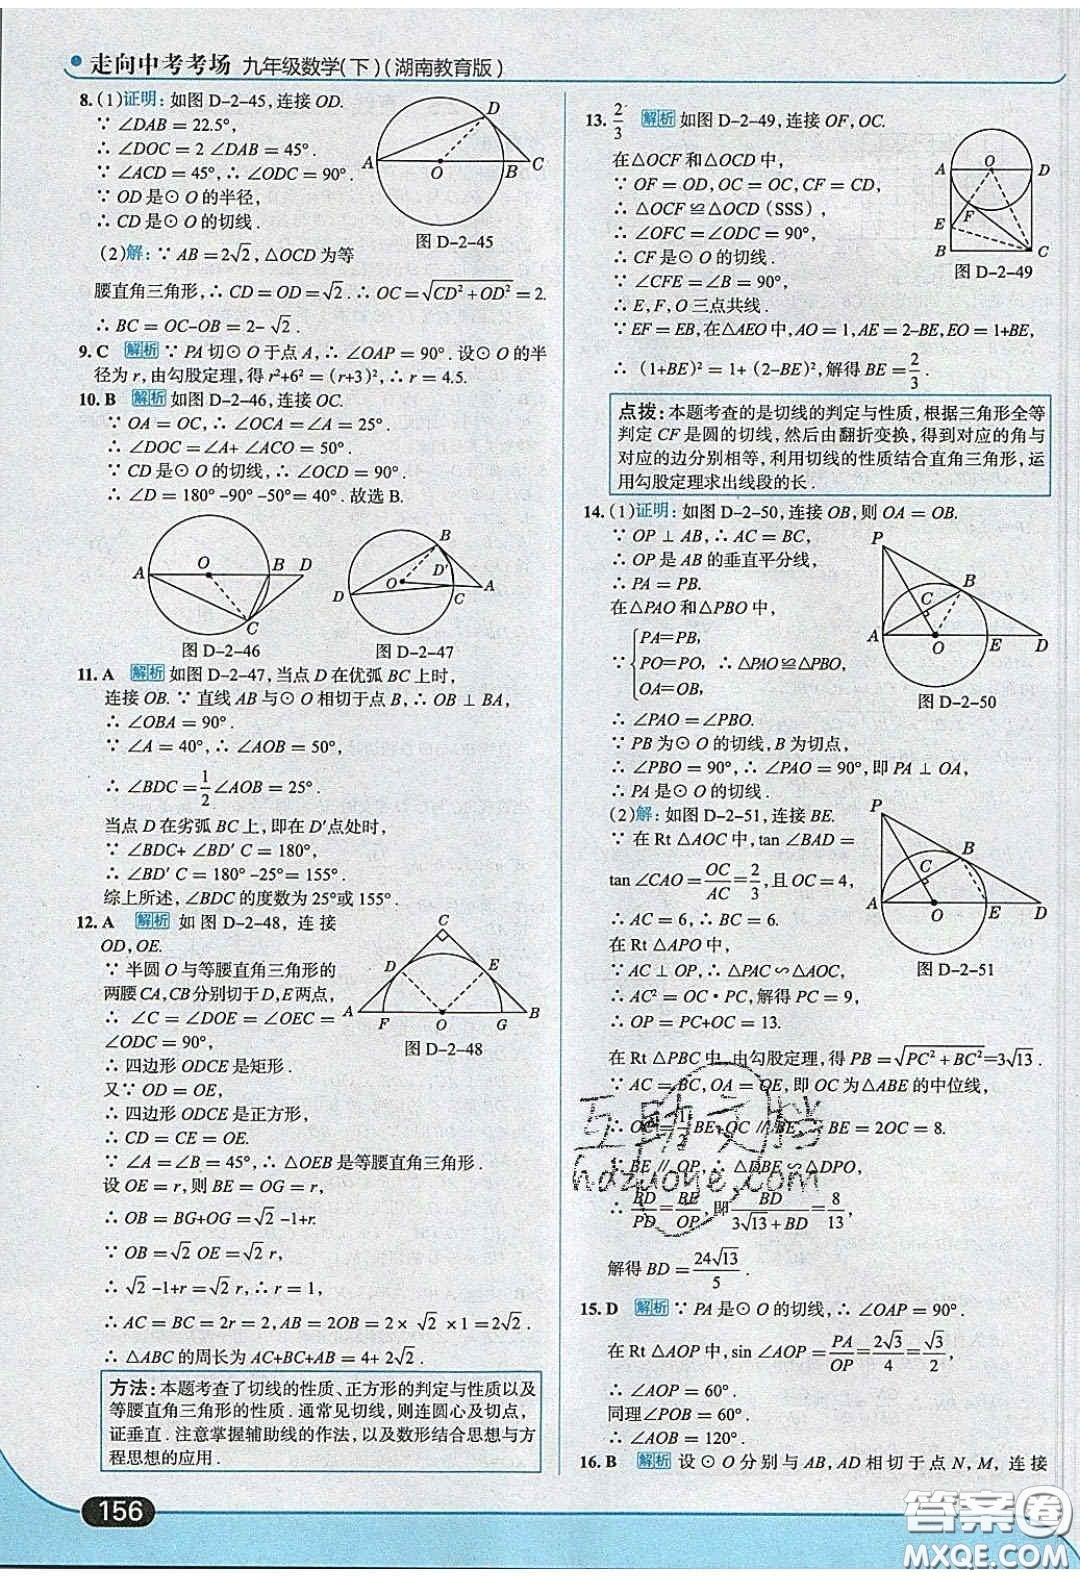 走向中考考场 九年级数学(下)(湖南教育版)
8.(1)证明:如图 D-2-45,连接 OD.
∵ ∠DAB = 22.5°,
∴ ∠DOC = 2 ∠DAB = 45°.
∵ ∠ACD = 45°,∴ ∠ODC = 90°.
∵ OD 是⊙ O 的半径,
∴ CD 是⊙ O 的切线.
A
O
B
C
D
图 D-2-45
(2)解:∵ AB = 2√2,△OCD 为等
腰直角三角形,∴ CD = OD = √2.∴ OC = √(CD² + OD²) = 2.
∴ BC = OC-OB = 2- √2.
9. C 解析 ∵ PA 切⊙ O 于点 A,∴ ∠OAP = 90°. 设⊙ O 的半
径为 r,由勾股定理,得 r²+6² = (r+3)²,∴ r = 4.5.
10. B 解析 如图 D-2-46,连接 OC.
∵ OA = OC,∴ ∠OCA = ∠A = 25°.
∴ ∠DOC = ∠A+ ∠ACO = 50°.
∵ CD 是⊙ O 的切线,∴ ∠OCD = 90°.
∴ ∠D = 180° -90° -50° = 40°. 故选 B.
A
O
B
D
C
图 D-2-46
B
D′
O
A
C
D
图 D-2-47
11. A 解析 如图 D-2-47,当点 D 在优弧 BC 上时,
连接 OB. ∵ 直线 AB 与⊙ O 相切于点 B,∴ OB ⊥ BA,
∴ ∠OBA = 90°.
∵ ∠A = 40°,∴ ∠AOB = 50°,
∴ ∠BDC = 1/2 ∠AOB = 25°.
当点 D 在劣弧 BC 上,即在 D′点处时,
∵ ∠BDC+ ∠BD′ C = 180°,
∴ ∠BD′ C = 180° -25° = 155°.
综上所述,∠BDC 的度数为 25°或 155°.
12. A 解析 如图 D-2-48, 连接
OD,OE.
∵ 半圆 O 与等腰直角三角形的
两腰 CA,CB 分别切于 D,E 两点,
∴ ∠C = ∠DOE = ∠OEC =
∠ODC = 90°,
∴ 四边形 ODCE 是矩形.
又∵ OD = OE,
∴ 四边形 ODCE 是正方形,
∴ CD = CE = OE.
C
D
E
A
F
O
G
B
图 D-2-48
∵ ∠A = ∠B = 45°,∴ △OEB 是等腰直角三角形.
设 OE = r,则 BE = OG = r,
∴ OB = BG+OG = √2 -1+r.
∵ OB = √2 OE = √2 r,
∴ √2 -1+r = √2 r,∴ r = 1,
∴ AC = BC = 2r = 2,AB = 2OB = 2× √2 ×1 = 2√2.
∴ △ABC 的周长为 AC+BC+AB = 4+ 2√2.
方法:本题考查了切线的性质、正方形的判定与性质以及
等腰直角三角形的性质. 通常见切线,则连圆心及切点,
证垂直. 注意掌握辅助线的作法,以及数形结合思想与方
程思想的应用.
156
13. 2/3 解析 如图 D-2-49,连接 OF,OC.
在△OCF 和△OCD 中,
∵ OF = OD,OC = OC,CF = CD,
∴ △OCF ≌ △OCD (SSS),
∴ ∠OFC = ∠ODC = 90°,
∴ CF 是⊙ O 的切线.
∵ ∠CFE = ∠B = 90°,
∴ E,F,O 三点共线.
A
O
D
E
F
B
C
图 D-2-49
∵ EF = EB,在△AEO 中,AO = 1,AE = 2-BE,EO = 1+BE,
∴ (1+BE)² = 1+ (2-BE)²,解得 BE = 2/3.
点拨:本题考查的是切线的判定与性质,根据三角形全等
判定 CF 是圆的切线,然后由翻折变换,得到对应的角与
对应的边分别相等,利用切线的性质结合直角三角形,运
用勾股定理求出线段的长.
14. (1)证明:如图 D-2-50,连接 OB,则 OA = OB.
∵ OP ⊥ AB,∴ AC = BC,
∴ OP 是 AB 的垂直平分线,
∴ PA = PB.
在△PAO 和△PBO 中,
∵ { PA = PB, PO = PO, OA = OB, ∴ △PAO≌△PBO,
∴ ∠PAO = ∠PBO.
P
C
B
A
O
E
D
图 D-2-50
∵ PB 为⊙ O 的切线,B 为切点,
∴ ∠PBO = 90°,∴ ∠PAO = 90°,即 PA ⊥ OA,
∴ PA 是⊙ O 的切线.
(2)解:如图 D-2-51,连接 BE.
∵ 在 Rt △AOC 中,tan ∠BAD =
tan ∠CAO = OC/AC = 2/3,且 OC = 4,
∴ AC = 6,∴ BC = 6.
在 Rt △APO 中,
∵ AC ⊥ OP,∴ △PAC ∽ △AOC,
∴ AC² = OC·PC,解得 PC = 9,
∴ OP = PC+OC = 13.
P
C
B
A
O
E
D
图 D-2-51
在 Rt △PBC 中,由勾股定理,得 PB = √(PC² + BC²) = 3√13.
∵ AC = BC,OA = OE,即 OC 为△ABE 的中位线,
∴ OC = 1/2 BE,OC // BE,∴ BE = 2OC = 8.
∵ BE // OP,∴ △DBE ∽ △DPO,
∴ BD/PD = BE/OP,即 BD/(3√13 + BD) = 8/13,
解得 BD = 24√13/5.
15. D 解析 ∵ PA 是⊙ O 的切线,∴ ∠OAP = 90°.
在 Rt △AOP 中,sin ∠AOP = PA/OP = 2√3/4 = √3/2,
∴ ∠AOP = 60°.
同理∠POB = 60°.
∴ ∠AOB = 120°.
16. B 解析 设 ⊙ O 分别与 AB,AD 相切于点 N, M, 连接
互助文档
hazuone.com
答案圈
MXQE.COM